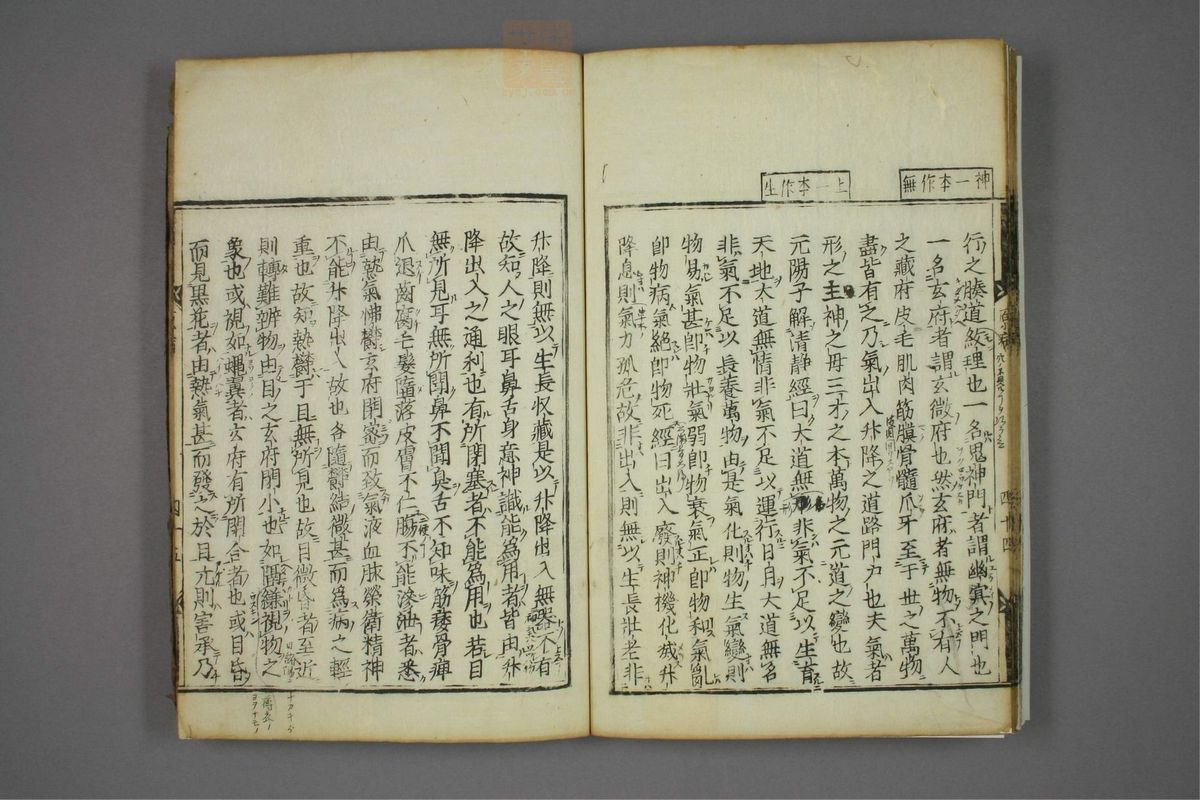 神一本作無
上一本作生
行之腠道紋理也一名鬼神門者謂幽冥之門也
一名玄府者謂玄微府也然玄府者無物不有人
之藏府皮毛肌肉筋膜骨髓爪牙至于世之萬物
盡皆有之乃氣出入升降之道路門戶也夫氣者
形之主神之母三才之本萬物之元道之變也故
元陽子解清静經曰大道無形非氣不足以生育
天地大道無情非氣不足以運行日月大道無名
非氣不足以長養萬物由是氣化則物生氣變則
物易氣甚即物壯氣弱即物衰氣正即物和氣亂
即物病氣絕即物死經曰出入廢則神機化滅升
降息則氣力孤危故非出入則無以生長壯老非
升降則無以生長収藏是以升降出入無噐不有
故知人之眼耳鼻舌身意神識能為用者皆由升
降出入之通利也有所閉塞者不能為用也若目
無所見耳無所聞鼻不聞臭舌不知味筋痿骨痺
爪退齒腐毛髮墮落皮膚不仁腸不能滲泄者悉
由熱氣怫鬱玄府閉密而致氣液血脉榮衛精神
不能升降出入故也各隨鬱結微甚而為病之輕
重也故知熱鬱于目無所見也故目微昏者至近
則轉難辨物由目之玄府閉小也如隔縑視物之
象也或視如蠅翼者玄府有所閉合者也或目昏
而見黒花者由熱氣甚而發之於目亢則害承乃